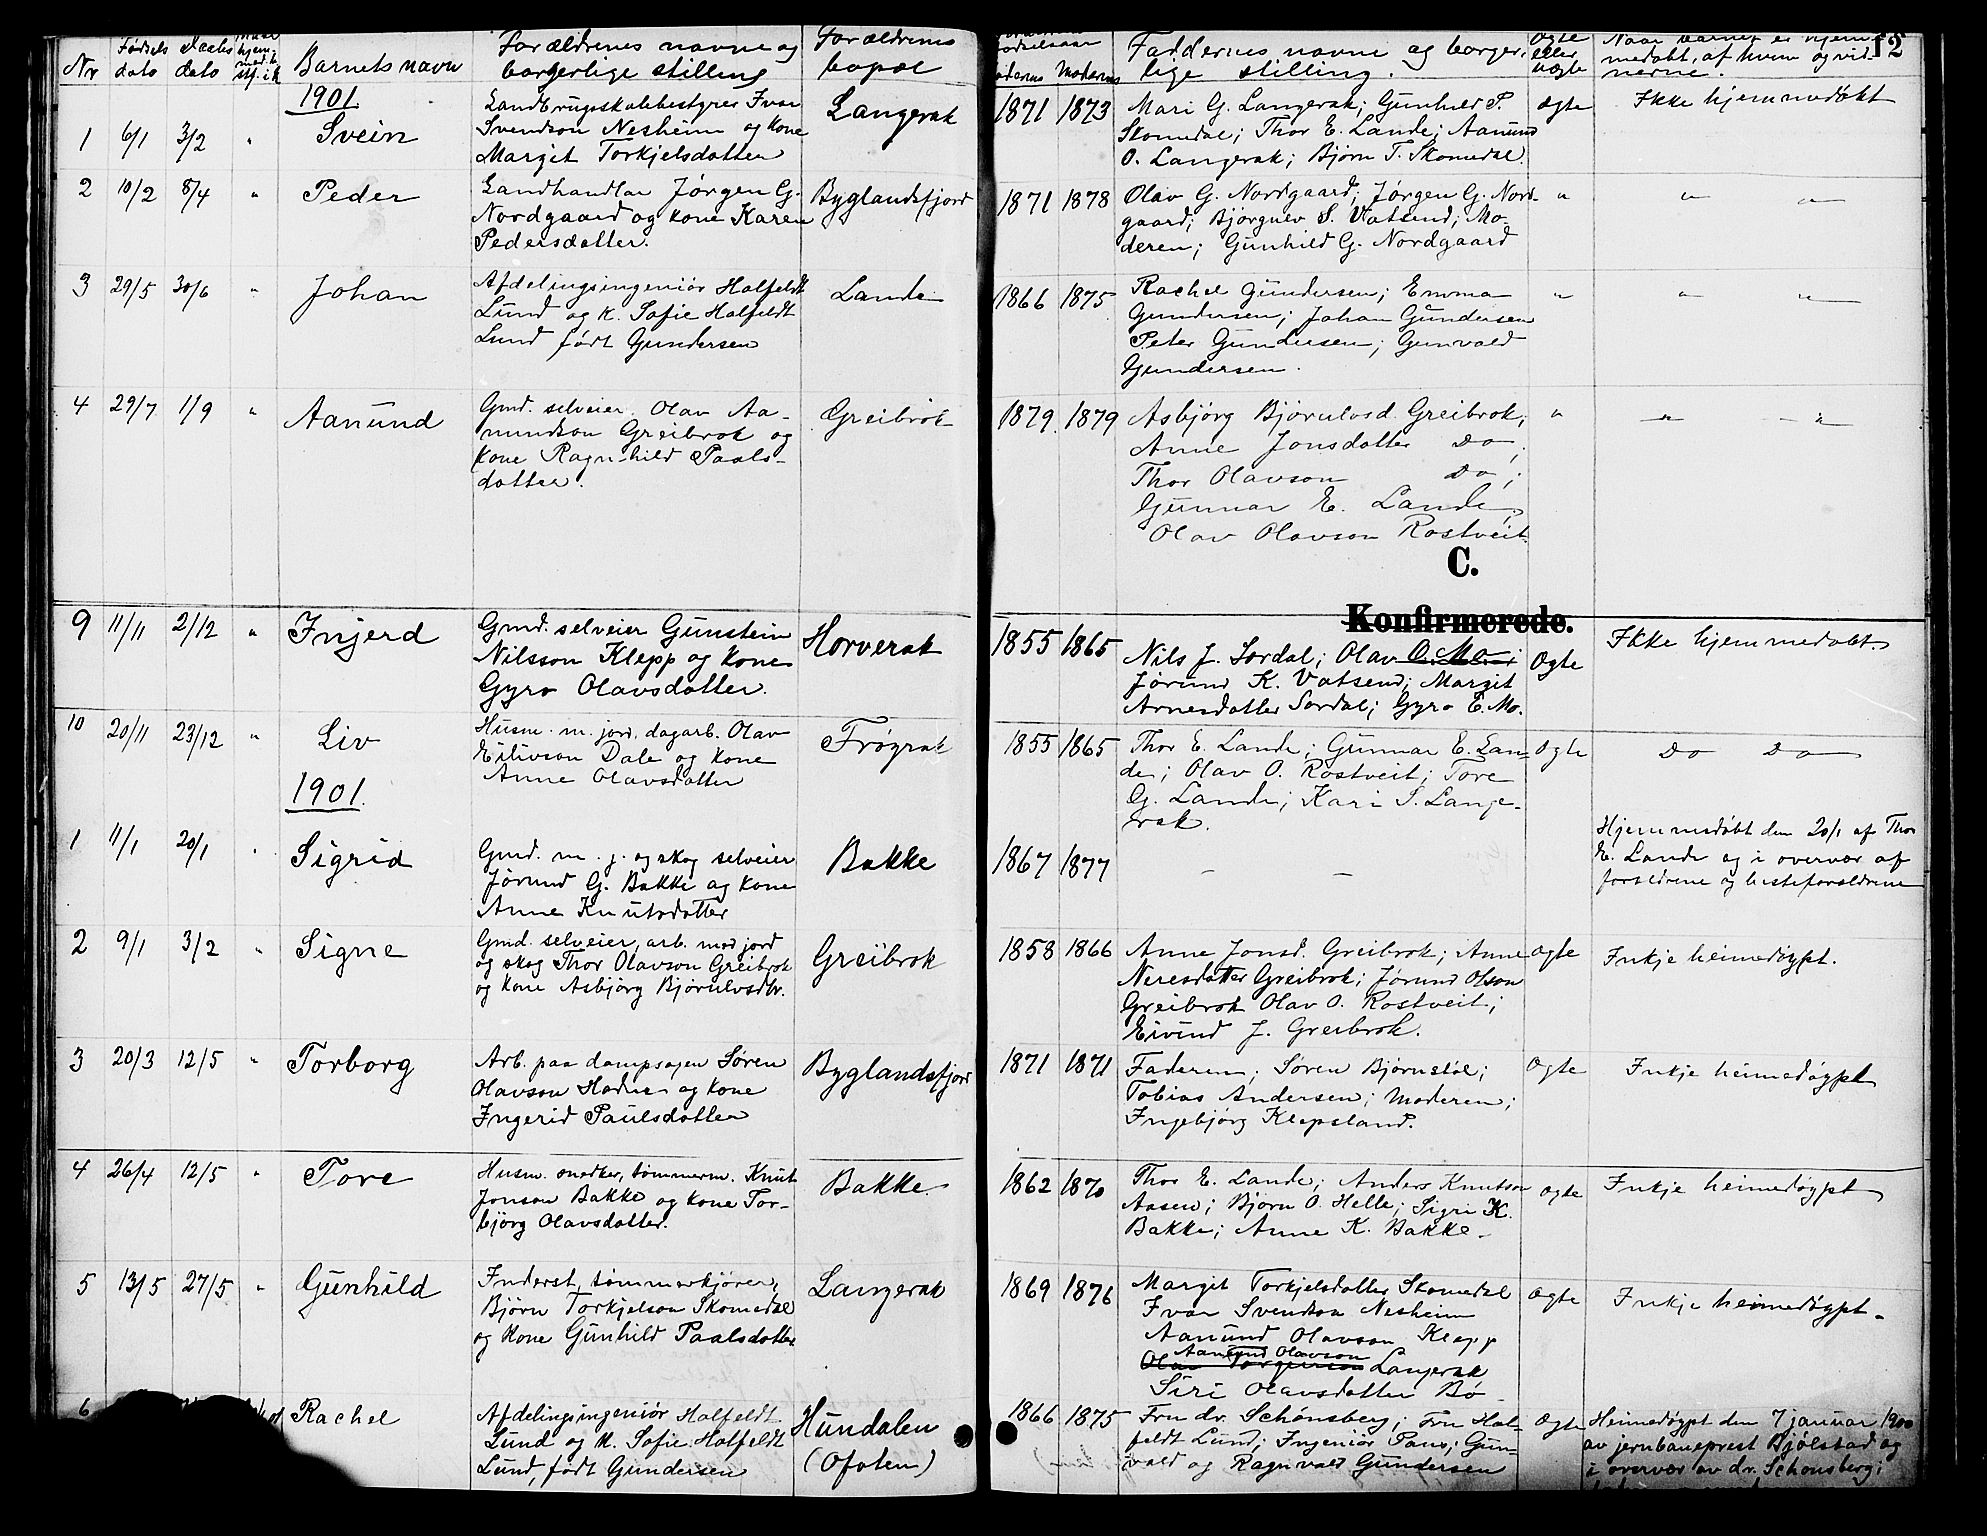 12
Nr Fødsels dato Daabs dato Barnets navn Forældrenes navne og borgerlige stilling Forældrenes bopæl Moderns Faddernes navne og borgerlige stilling. Øgte eller uægte Naar barnet er hjemmedøbt, af hvem og vidnerne.
1901
1 6/1 3/2 " Svein
Landbrugsskolebestyrer Ivar
Svendson Nesheim og kone
Margit Torkjelsdatter
Langerak
1871 1873
Mari G. Langerak; Gunhild P.
Skomedal; Thor E. Lande; Aanund
O. Langerak; Bjørn T. Skomedal.
Ægte
Ikke hjemmedøbt
2 10/2 8/4 " Peder
Landhandlar Jørgen G.
Nordgaard og kone Karen
Pedersdatter.
Byglandsfjord
1871 1878
Olav G. Nordgaard; Jørgen G. Nord-
gaard; Bjørgulv S. Vatsend; Mo-
deren; Gunhild G. Nordgaard
" " "
3 29/5 30/6 " Johan
Afdelingsingeniør Halfeldt
Lund og k. Sofie Halfeldt
Lund født Gundersen
Lande
1866 1875
Rachel Gundersen; Emma
Gundersen; Johan Gundersen
Peter Gundersen; Gunvald
Gundersen.
" " "
4 29/7 1/9 " Aanund
Gmd. selveier Olav Aa-
nundson Greibrok og
kone Ragnhild Paals-
datter.
Greibrok
1879 1879
Asbjørg Bjørulvsd. Greibrok;
Anne Jonsdatter Do;
Thor Olavson Do;
Gunnar E. Lande;
Olav Olavson Rostveit
" " "
C.
Konfirmerede.
9 11/11 2/12 " Injerd
Gmd. selveier Gunstein
Nilsson Klepp og kone
Gyro Olavsdatter.
Horverak
1855 1865
Nils J. Sordal; Olav O. Mo;
Jørund K. Vatsend; Margit
Arnesdatter Sordal; Gyro E. Mo.
Øgte
Ikke hjemmedøbt.
10 20/11 23/12 " Liv
Husm. m. jord, dagarb. Olav
Eilivson Dale og kone
Anne Olavsdatter
Frøgrak
1855 1865
Thor E. Lande; Gunnar E. Lan-
de; Olav O. Rostveit; Tore
G. Lande; Kari S. Lange-
rak.
Øgte
Do Do
1901.
1 11/1 20/1 " Sigrid
Gmd. m. j. og skog selveier
Jørund G. Bakke og kone
Anne Knutsdatter
Bakke
1867 1877
– –
Hjemmedøbt den 20/1 af Thor
E. Lande og i overvær af
forældrene og besteforældrene
2 9/1 3/2 " Signe
Gmd. selveier, arb. med jord
og skog Thor Olavson Greibrok
og kone Asbjørg Bjørulvsdtr.
Greibrok
1858 1866
Anne Jonsd. Greibrok; Anne
Neresdatter Greibrok; Jørund Olson
Greibrok Olav O. Rostveit;
Eivind J. Greibrok.
Øgte
Inkje heimedøypt.
3 20/3 12/5 " Torborg
Arb. paa dampsagen Søren
Olavson Hodne og kone
Ingerid Paulsdatter
Byglandsfjord
1871 1871
Faderen; Søren Bjørnstøl;
Tobias Andersen; Moderen;
Ingebjørg Klepsland.
Øgte
Inkje heimedøypt
4 26/4 12/5 " Tore
Husm. snedker, tømmerm. Knut
Jonson Bakke og kone Tor-
bjørg Olavsdatter.
Bakke
1862 1870
Thor E. Lande; Anders Knutson
Aasen; Bjørn O. Helle; Sigri K.
Bakke; Anne K. Bakke.
Øgte
Inkje heimedøypt
5 13/5 27/5 " Gunhild
Inderst, tømmerkjører,
Bjørn Torkjelson Skomedal
og kone Gunhild Paalsdatter
Langerak
1869 1876
Margit Torkjelsdatter Skomedal
Ivar Svendson Nesheim
Aanund Olavson Klepp
Aanund Olavson
Olav Torgeirson Langerak
Siri Olavsdatter Bø
Øgte
Inkje heimedøypt.
6 Rachel
Afdelingsingeniør Halfeldt
Lund og k. Sofie Halfeldt
Lund, født Gundersen
Hundalen
(Ofoten)
1866 1875
Fru dr. Schønsberg; Fru Hal-
feldt Lund; Ingeniør Paus; Gun-
vald og Ragnvald Gundersen
Øgte
Heimedøypt den 7 januar 1900
av jernbaneprest Bjølstad og
i overvær av dr. Schønsberg;